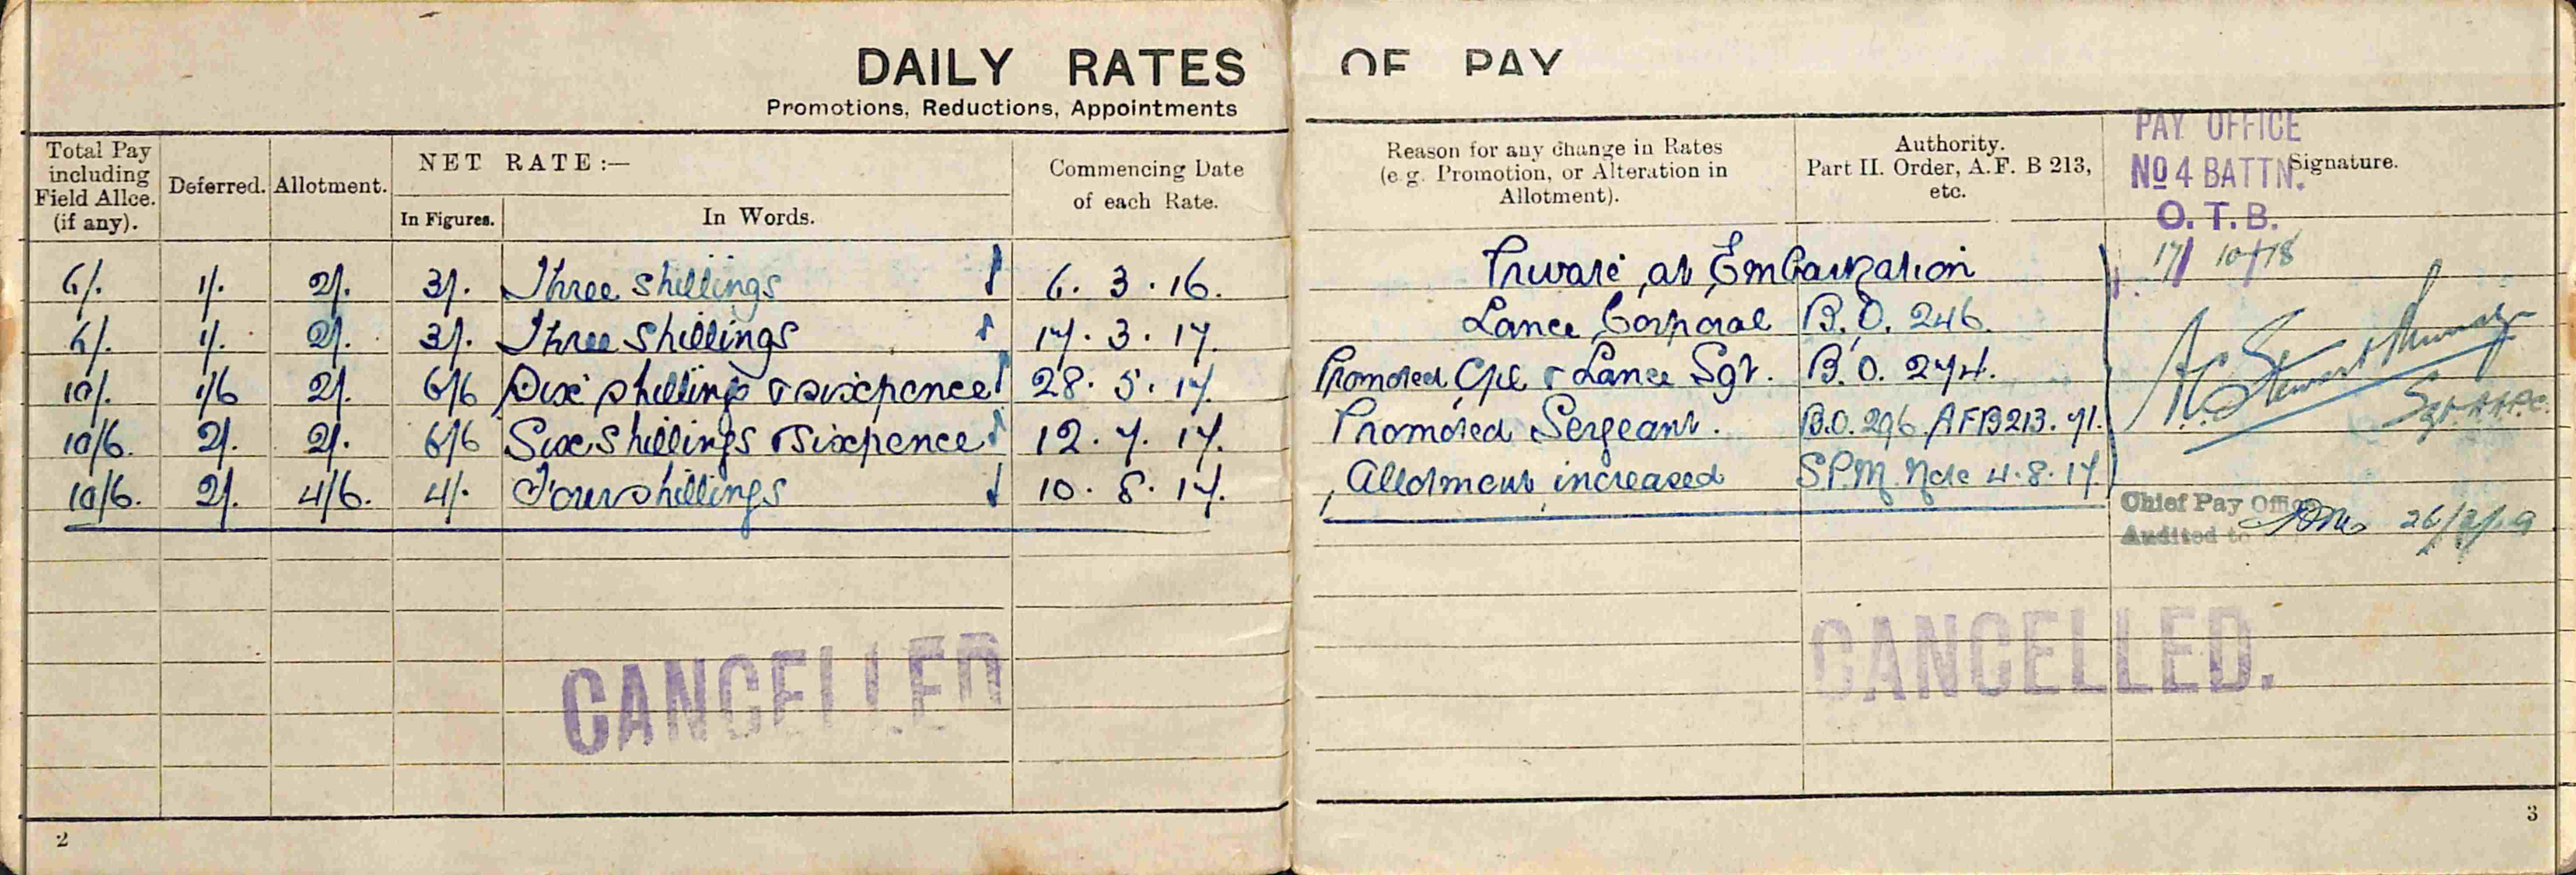 DAILY RATES OF PAY
Promotions, Reductions, Appointments
Total Pay including Field Allce. (if any).
Deferred.
Allotment.
NET RATE:—
In Figures.
In Words.
Commencing Date of each Rate.
Reason for any change in Rates (e.g. Promotion, or Alteration in Allotment).
Authority. Part II. Order, A.F. B 213, etc.
Signature.
PAY OFFICE
No 4 BATTN.
O. T. B.
17/10/18
6/. 1/. 2/. 3/. Three shillings 6. 3. 16. Private at Embarkation
6/. 1/. 2/. 3/. Three shillings 17. 3. 17. Lance Corporal B.O. 246.
10/. 1/6 2/. 6/6 Six shillings & sixpence 28. 5. 17. Promoted Cpl & Lance Sgt. B.O. 274.
10/6. 2/. 2/. 6/6 Six shillings & sixpence 12. 7. 17. Promoted Sergeant. B.O. 296. AFB213. 71.
10/6. 2/. 4/6. 4/. Four shillings 10. 8. 17. Allotment increased S.P.M. Note 4.8.17.
Stewart
Sgt. A.A.P.C.
Chief Pay Office
Audited to
CANCELLED
CANCELLED.
2
3